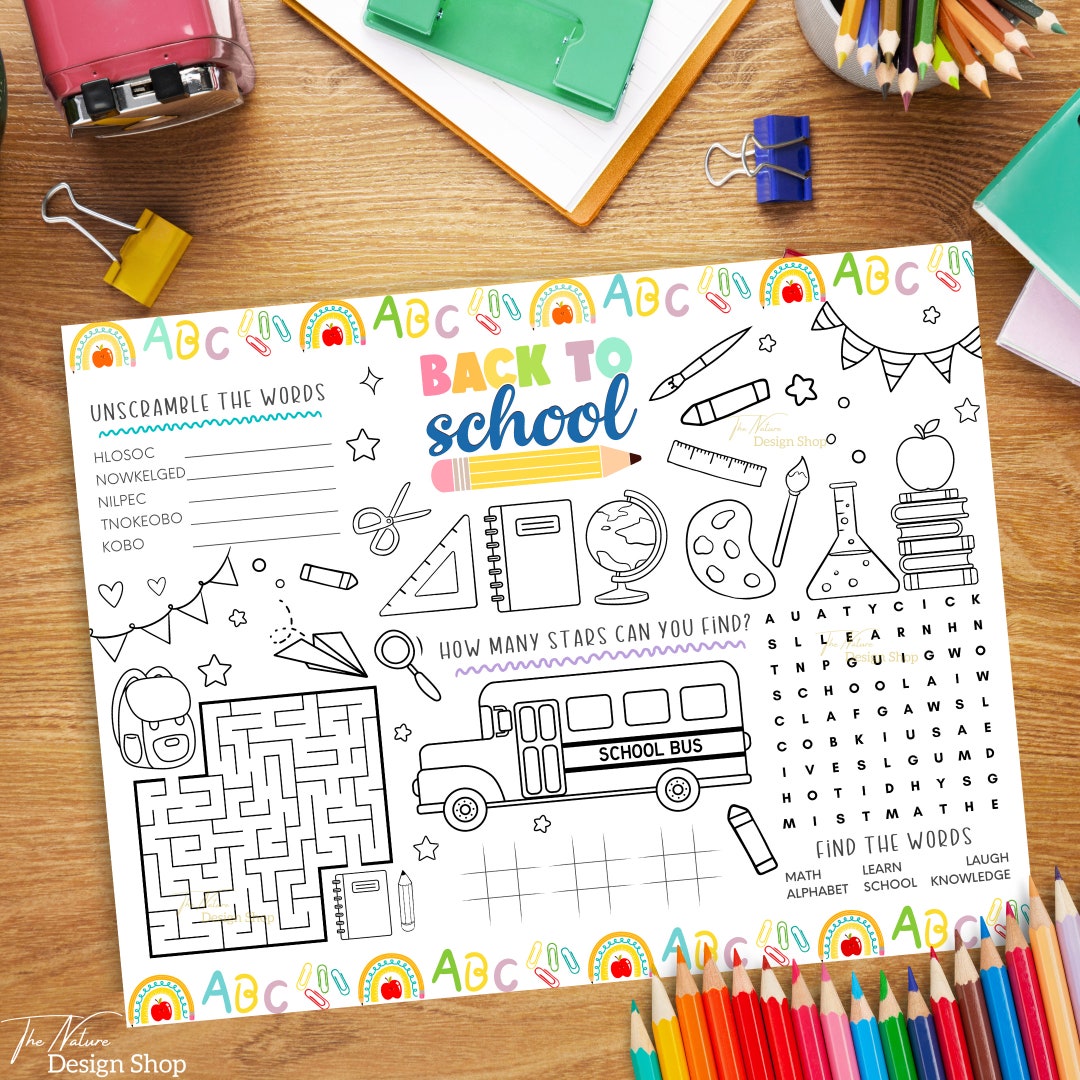 ABC ABC ABC ABC
BACK TO
school
UNSCRAMBLE THE WORDS
HLOSOC
NOWKELGED
NILPEC
TNOKEOBO
KOBO
The Nature
Design Shop
HOW MANY STARS CAN YOU FIND?
SCHOOL BUS
A U A T Y C I C K
S L L E A R N H N
The Nature
Design Shop
T N P G U G W O
S C H O O L A I W
C L A F G A W S L
C O B K I U S A E
I V E S L G U M D
H O T I D H Y S G
M I S T M A T H E
FIND THE WORDS
MATH LEARN LAUGH
ALPHABET SCHOOL KNOWLEDGE
The Nature
Design Shop
ABC ABC ABC ABC
The Nature
Design Shop